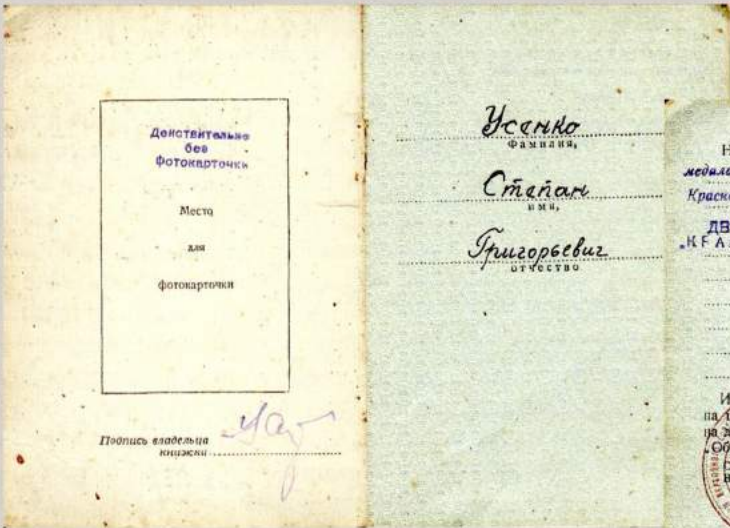 Действительно
без
фотокарточки
Место
для
фотокарточки
Подпись владельца
книжки
Усенко
Фамилия,
Степан
имя,
Григорьевич
отчество
медал
Красн
ДВ